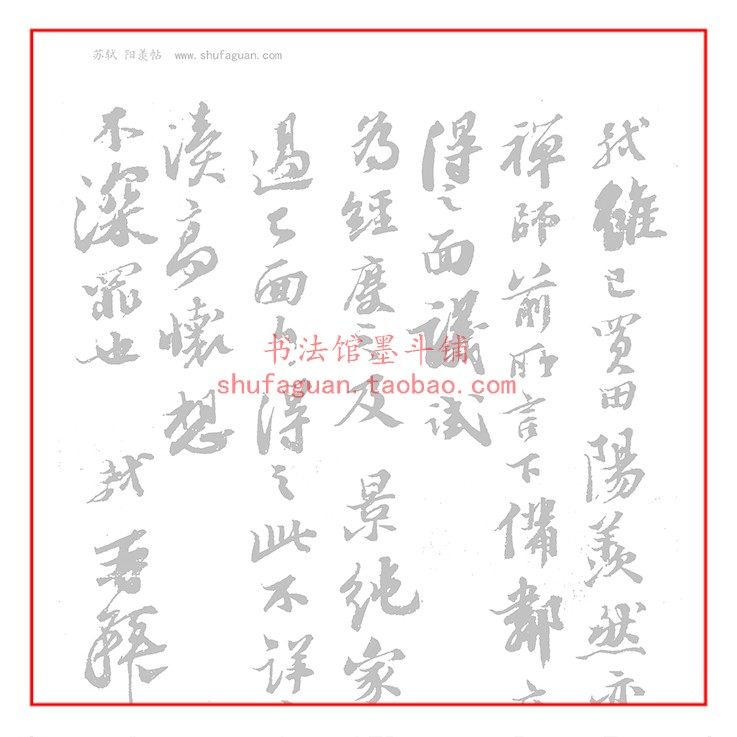 苏轼 阳羡帖 www.shufaguan.com
軾雖已買田陽羨然亦
禪師前所言下備鄰
得之面議試
為經度之及 景純家
過已面白得之此不詳
瀆高懷想
不深罪也 軾再拜
书法馆墨斗铺
shufaguan.taobao.com